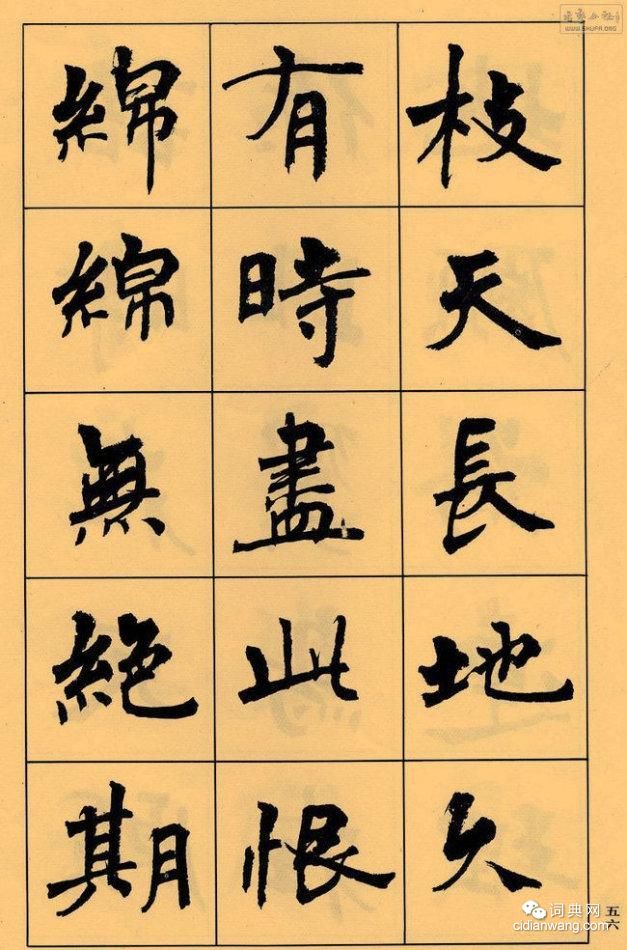 枝天長地久
有時盡此恨
綿綿無絕期
五六
WWW.SHUFA.ORG
词典网
cidianwang.com